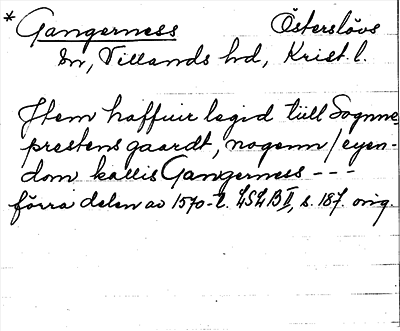 * Gangerness Österslövs
sn, Villands hd, Krist. l.
Jtem haffuir legid tiill Sognne-
prestens gaardt, nogenn / eyen-
dom kallis Gangerness - - -
förra delen av 1570-t. LSLB II, s. 187. orig.